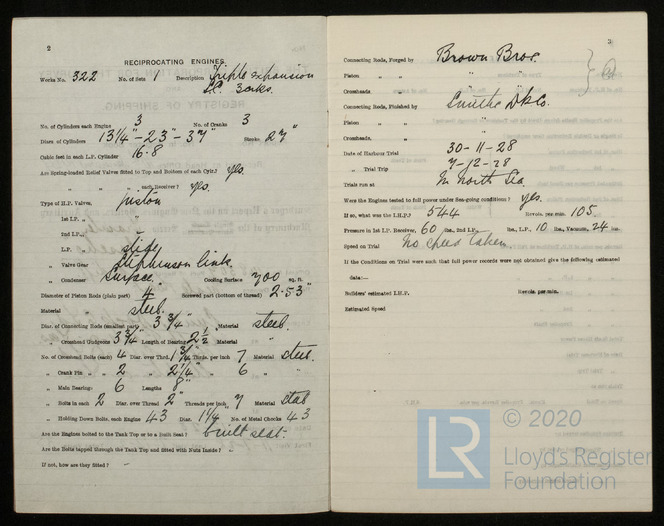 2
RECIPROCATING ENGINES.
Works No. 322 No. of Sets 1 Description Triple expansion
S.C. 3 cks.
No. of Cylinders each Engine 3 No. of Cranks 3
Diars. of Cylinders 13 1/4" - 23" - 37" Stroke 27"
Cubic feet in each L.P. Cylinder 16.8
Are Spring-loaded Relief Valves fitted to Top and Bottom of each Cylr.? yes.
" " " each Receiver? yes.
Type of H.P. Valves, piston
1st I.P. " "
2nd I.P. "
L.P. " slide
" Valve Gear Stephenson link.
" Condenser Surface. Cooling Surface 700 sq. ft.
Diameter of Piston Rods (plain part) 4" Screwed part (bottom of thread) 2.53"
Material " steel.
Diar. of Connecting Rods (smallest part) 3 3/4" Material steel.
" Crosshead Gudgeons 3 3/4" Length of Bearing 2 1/2" Material "
No. of Crosshead Bolts (each) 4 Diar. over Thrd. 1 3/4" Thrds. per inch 7 Material steel.
" Crank Pin " " 2 " 2 1/4" " 6 " "
" Main Bearings 6 Lengths 8"
" Bolts in each 2 Diar. over Thread 2" Threads per inch 7 Material steel
" Holding Down Bolts, each Engine 43 Diar. 1 1/4 No. of Metal Chocks 43
Are the Engines bolted to the Tank Top or to a Built Seat? built seat.
Are the Bolts tapped through the Tank Top and fitted with Nuts Inside? "
If not, how are they fitted? -
3
Connecting Rods, Forged by Brown Bros.
Piston " " " "
Crossheads, "
Connecting Rods, Finished by Smiths Dk Co.
Piston " " "
Crossheads, " "
Date of Harbour Trial 30-11-28
" Trial Trip 7-12-28
Trials run at In North Sea.
Were the Engines tested to full power under Sea-going conditions? yes.
If so, what was the I.H.P.? 544 Revols. per min. 105
Pressure in 1st I.P. Receiver, 60 lbs., 2nd I.P., lbs., L.P., 10 lbs., Vacuum, 24 ins.
Speed on Trial No speed taken.
If the Conditions on Trial were such that full power records were not obtained give the following estimated
data:—
Builders' estimated I.H.P. Revols. per min.
Estimated Speed
LR
© 2020
Lloyd's Register
Foundation